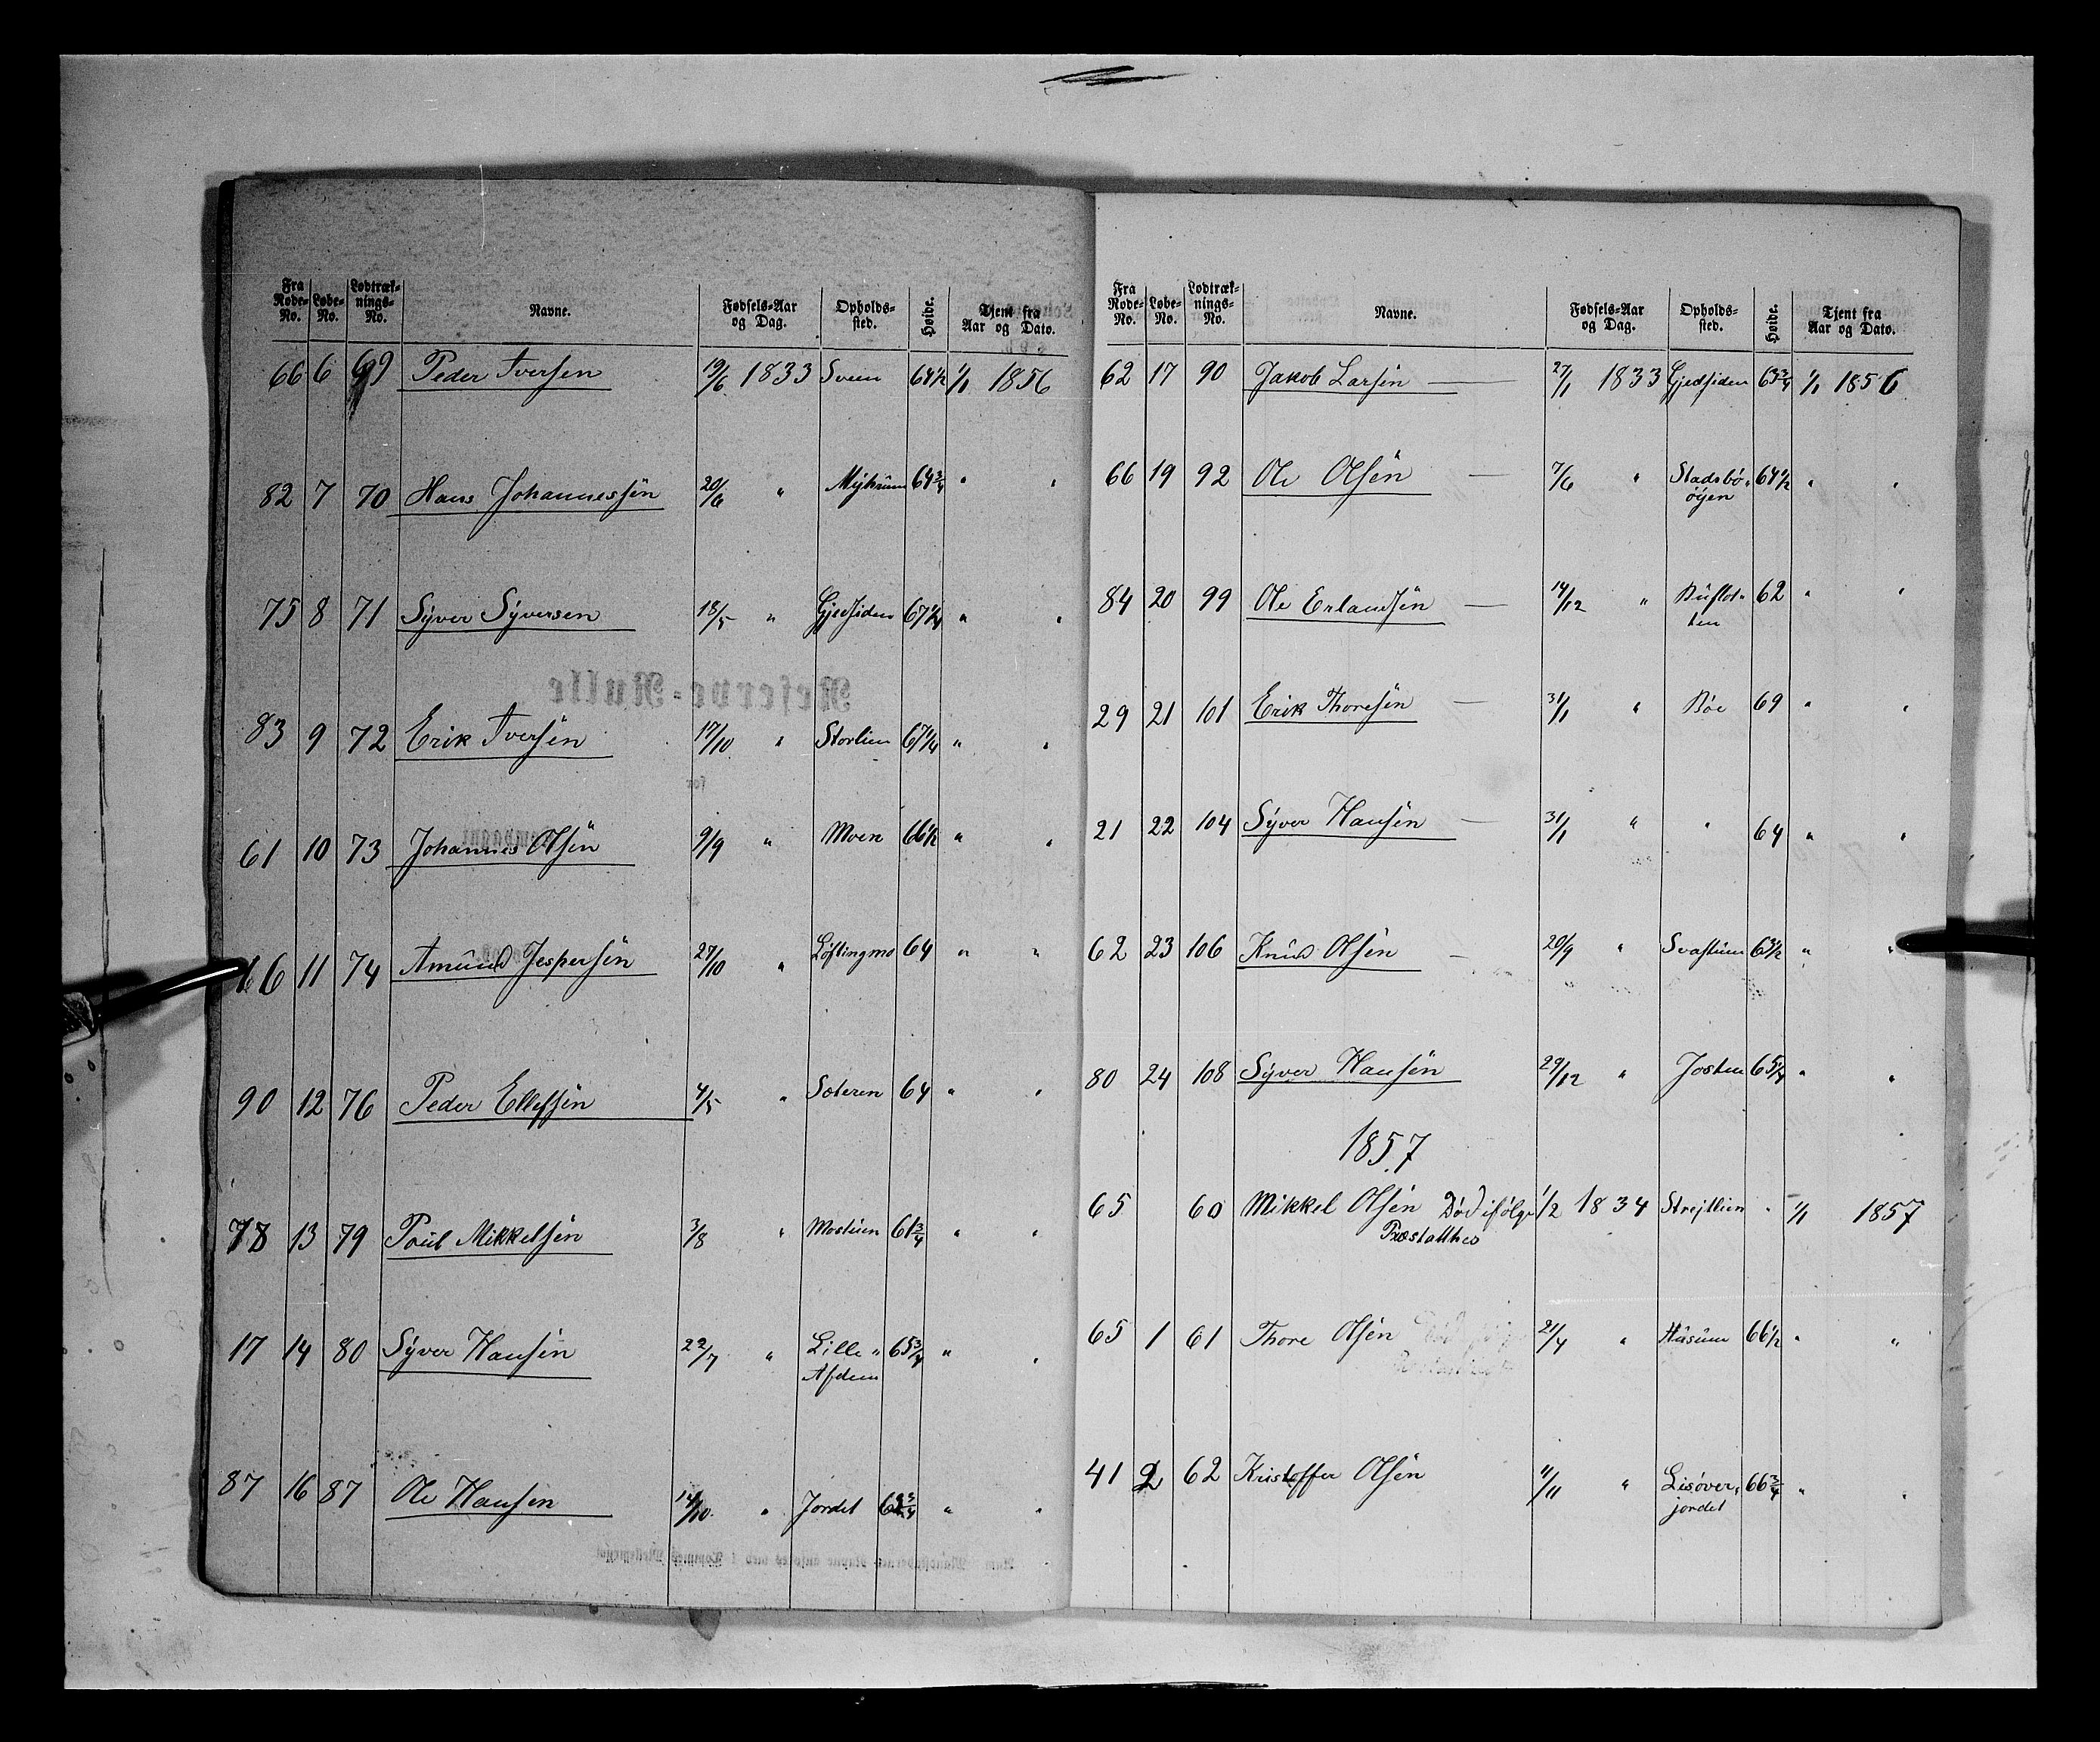 Fra Rode-No. Løbe-No. Lodtræk-nings-No. Navne. Fødsels-Aar og Dag. Opholds-sted. Høide. Tjent fra Aar og Dato.
66 6 69 Peder Iversen 19/6 1833 Sveen 64 1/2 1/1 1856
82 7 70 Hans Johannessen 20/6 " 64 3/4 " "
75 8 71 Syver Syversen 18/5 " Gjedsiden 67 1/4 " "
83 9 72 Erik Iversen 17/10 " Storlien 67 1/4 " "
61 10 73 Johannes Olsen 9/9 " Moen 66 1/2 " "
66 11 74 Amund Jespersen 27/10 " Løftingmo 64 " "
90 12 76 Peder Ellefsen 4/5 " Sæteren 64 " "
78 13 79 Poul Mikkelsen 3/8 " Mostuen 61 3/4 " "
17 14 80 Syver Hansen 22/7 " Lille " 65 3/4 " "
87 16 87 Ole Hansen 14/10 " Jordet " "
Fra Rode-No. Løbe-No. Lodtræk-nings-No. Navne. Fødsels-Aar og Dag. Opholds-sted. Høide. Tjent fra Aar og Dato.
62 17 90 Jakob Larsen — 27/1 1833 Gjedsiden 63 3/4 1/1 1856
66 19 92 Ole Olsen — 7/6 " Stadsbø- 64 1/2 " "
øyen
84 20 99 Ole Erlandsen — 14/12 " 62 " "
29 21 101 Erik Thoresen — 31/1 " Bøe 69 " "
21 22 104 Syver Hansen — 31/1 " " 64 " "
62 23 106 Knud Olsen — 20/9 " Svastuen 63 1/2 " "
80 24 108 Syver Hansen 29/12 " Josten 65 1/4 " "
1857
65 60 Mikkel Olsen Død ifølge 1/2 1834 Strejtlien " 1/1 1857
Præstatthes
65 1 61 Thore Olsen 21/4 " Husum 66 1/2 " "
41 2 62 Kristoffer Olsen 11/11 " Lisøver- 66 3/4 " "
jordet